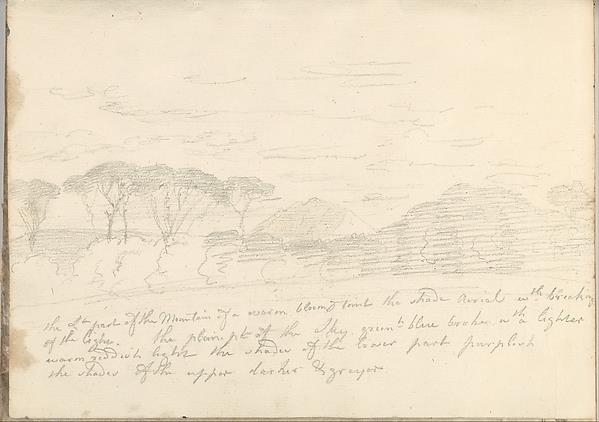 the Lt part of the Mountain of a warm bloomy tint the shade Aerial wth breaking
of the light. the plain pt of the Sky green h blue broke wth a lighter
warm reddish light the shades of the lower part purplish
the shades of the upper darker & greyer